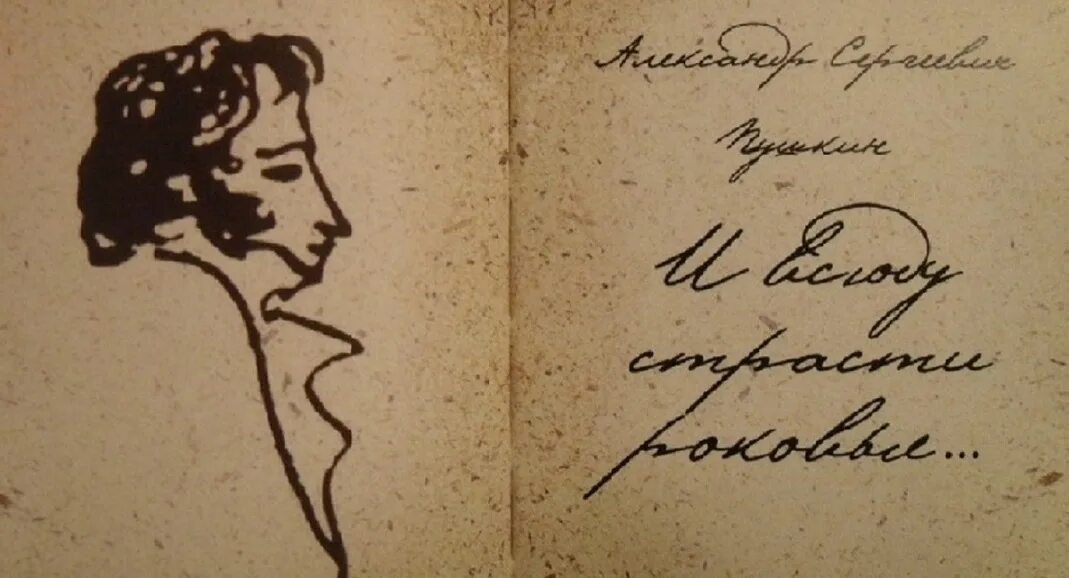 Александр Сергеевич
Пушкин
И всюду
страсти
роковые...